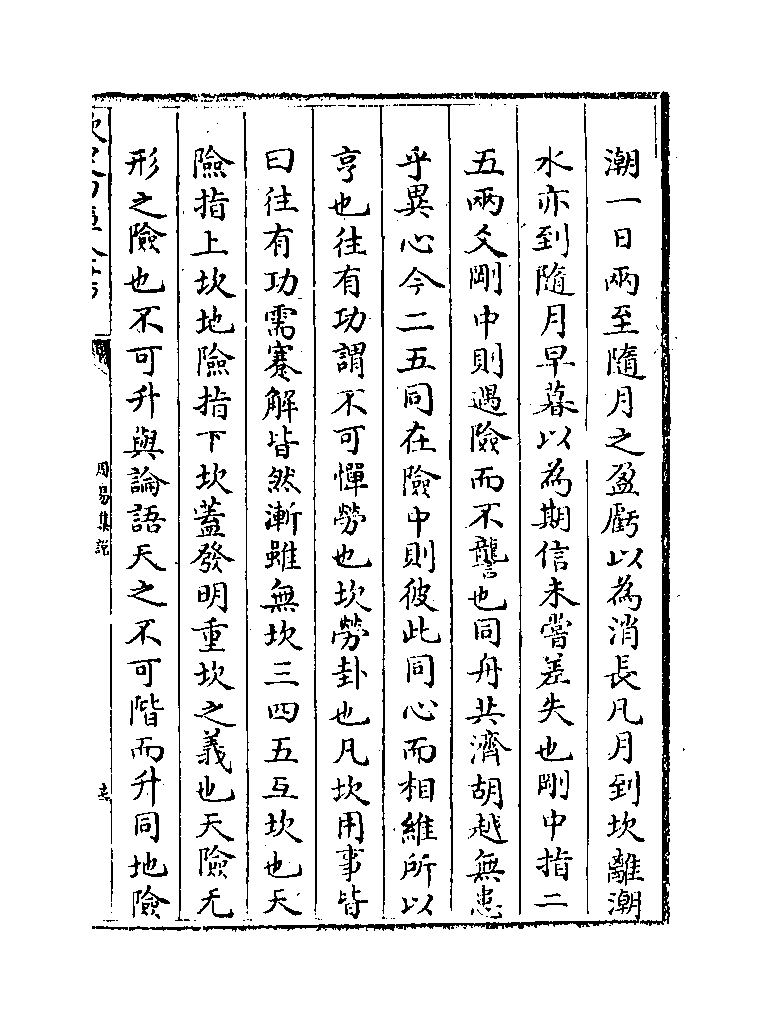 潮一日兩至隨月之盈虧以為消長凡月到坎離潮
水亦到隨月早暮以為期信未嘗差失也剛中指二
五兩爻剛中則遇險而不讋也同舟共濟胡越無患
乎異心今二五同在險中則彼此同心而相維所以
亨也往有功謂不可憚勞也坎勞卦也凡坎用事皆
曰往有功需蹇解皆然漸雖無坎三四五互坎也天
險指上坎地險指下坎蓋發明重坎之義也天險无
形之險也不可升與論語天之不可階而升同地險
周易集說